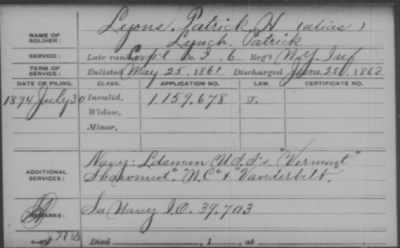 NAME OF SOLDIER:
Lyons, Patrick H (alias)
Lynch, Patrick
SERVICE:
Late rank Corp'l Co. 3, 6 Reg't N.Y. Inf
TERM OF SERVICE:
Enlisted May 25, 1861 Discharged June 25, 1863
DATE OF FILING. CLASS. APPLICATION NO. LAW. CERTIFICATE NO.
1894 July 30 Invalid, 1.159.678
Widow,
Minor,
ADDITIONAL SERVICES:
Navy: Ldsman U.S.S's. "Vermont"
"N.C" & "Vanderbilt.
REMARKS:
See Navy I.O. 39.703
Died , 1 , at